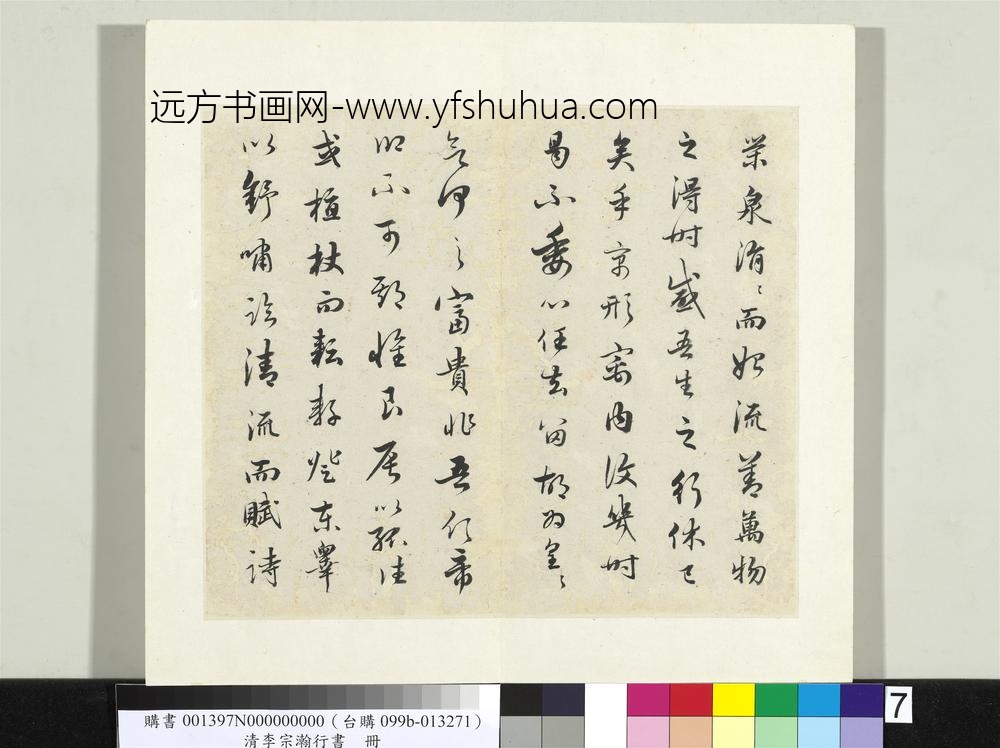 远方书画网-www.yfshuhua.com
榮泉涓〻而始流善萬物
之得時感吾生之行休已
矣乎寓形寓内復幾時
曷不委心任去留胡為皇〻
欲何之富貴非吾願帝
鄉不可期懷良辰以孤往
或植杖而耘耔登東皋
以舒嘯臨清流而賦詩
7
購書 001397N000000000（台購 099b-013271）
清李宗瀚行書　冊